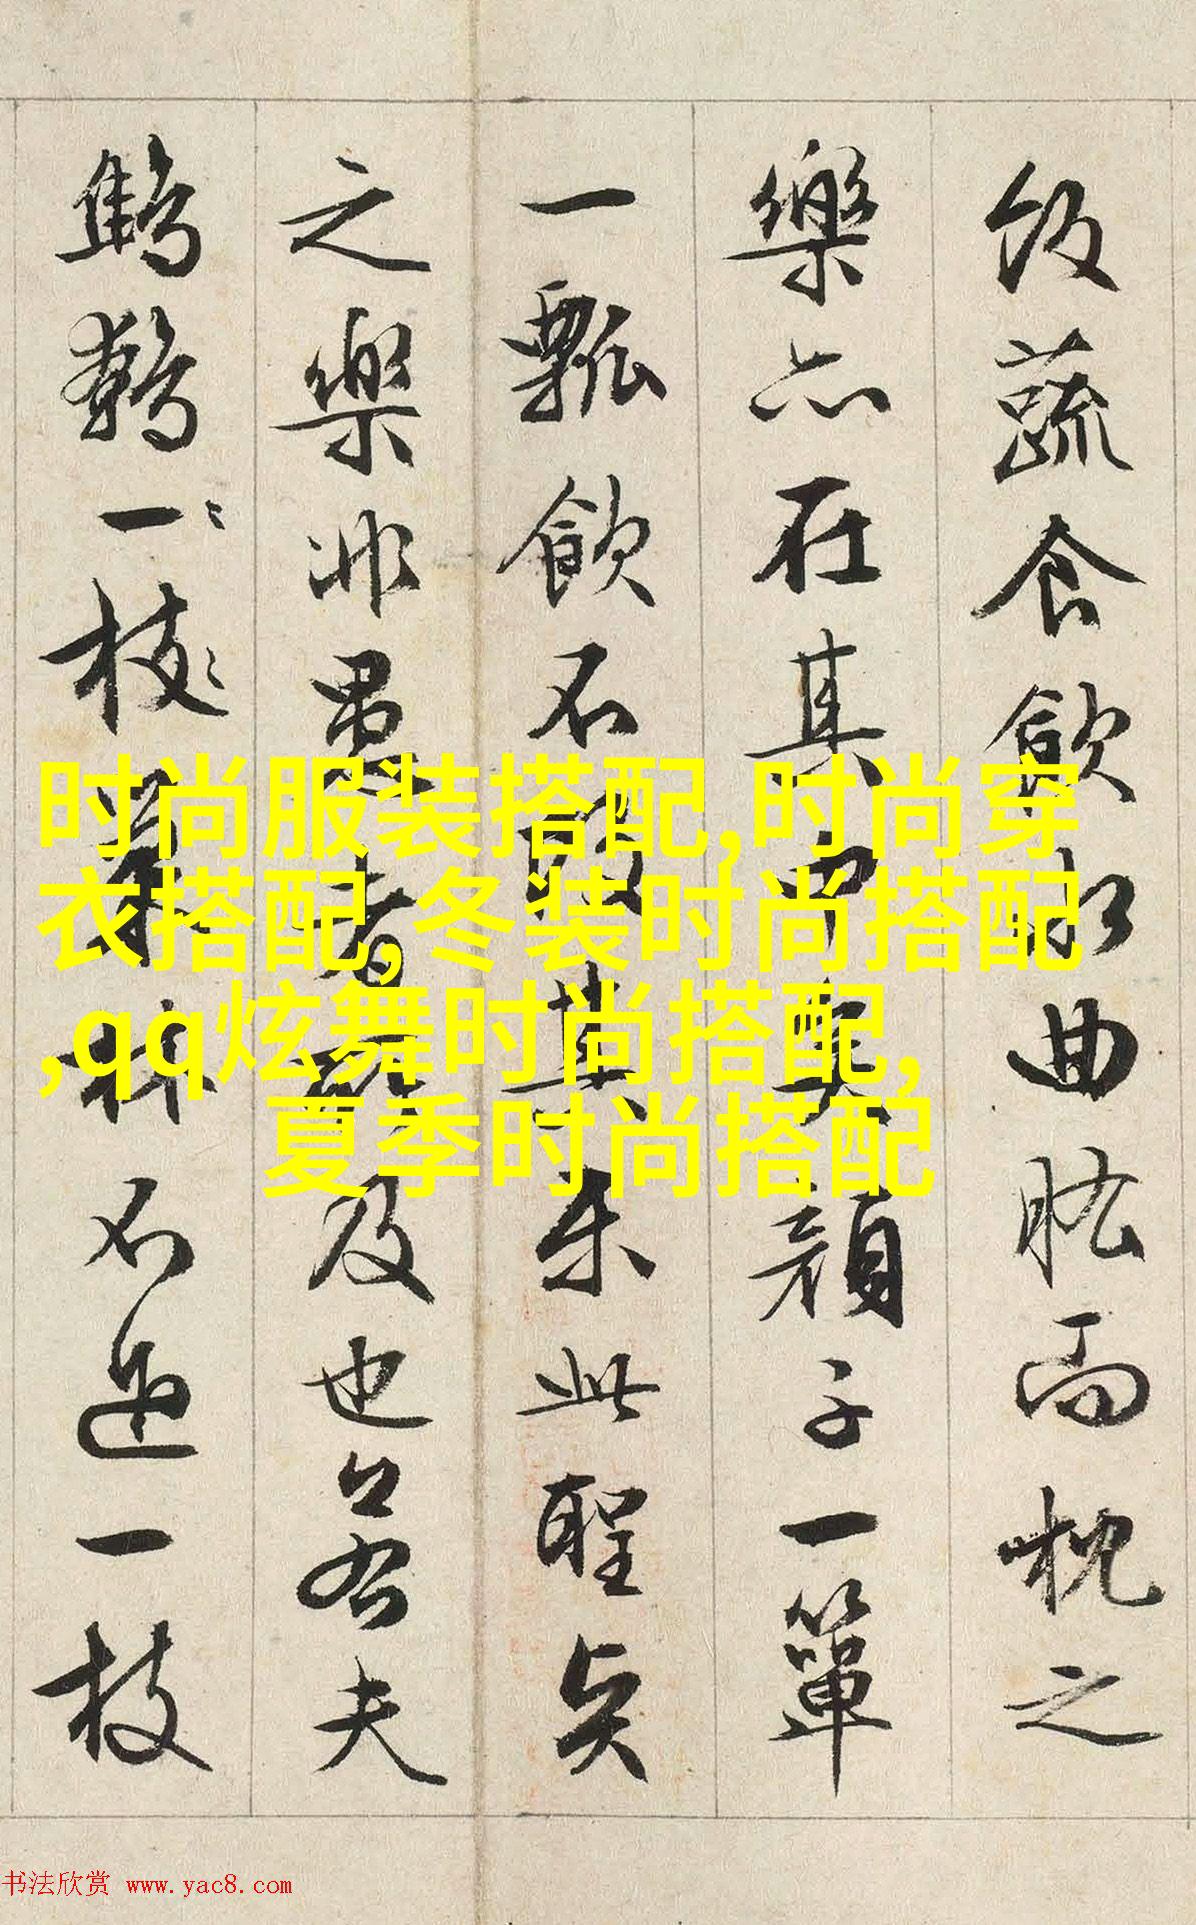 飯蔬食飲水曲肱而枕之
樂亦在其中矣顏子一簞
一瓢飲不改其樂此聖賢
之樂非愚者所及也若夫
鷦鷯一枝巢林不過一枝
时尚服装搭配,时尚穿
衣搭配,冬装时尚搭配
,qq炫舞时尚搭配,
夏季时尚搭配
书法欣赏 www.yac8.com